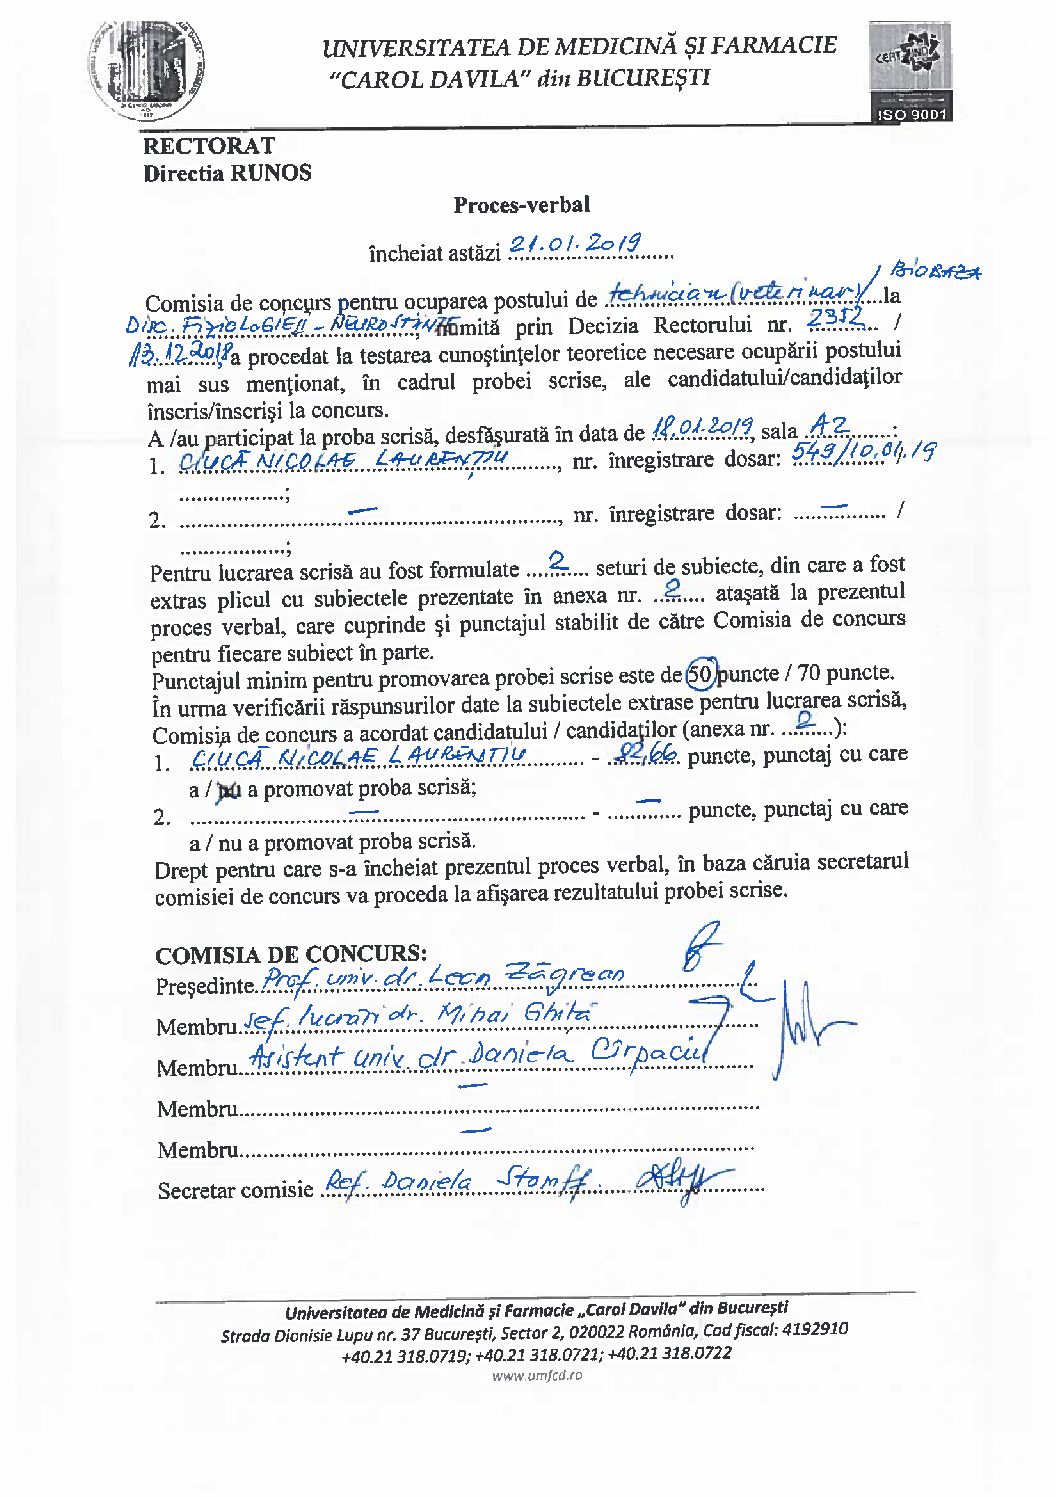 UNIVERSITATEA DE MEDICINĂ ŞI FARMACIE
"CAROL DAVILA" din BUCUREŞTI
CERT IND
ISO 9001
RECTORAT
Directia RUNOS
Proces-verbal
încheiat astăzi 21.01.2019
BIOBAZA
Comisia de concurs pentru ocuparea postului de tehnician (veterinar)/ la
Disc. FIZIOLOGIE II - NEUROSTIINTE numită prin Decizia Rectorului nr. 2352 /
13.12.2018, a procedat la testarea cunoştinţelor teoretice necesare ocupării postului
mai sus menţionat, în cadrul probei scrise, ale candidatului/candidaţilor
înscris/înscrişi la concurs.
A /au participat la proba scrisă, desfăşurată în data de 18.01.2019, sala A2 :
1. CIUCĂ NICOLAE LAURENŢIU, nr. înregistrare dosar: 549/10.01./19
;
2. — , nr. înregistrare dosar: — /
;
Pentru lucrarea scrisă au fost formulate 2 seturi de subiecte, din care a fost
extras plicul cu subiectele prezentate în anexa nr. 2 ataşată la prezentul
proces verbal, care cuprinde şi punctajul stabilit de către Comisia de concurs
pentru fiecare subiect în parte.
Punctajul minim pentru promovarea probei scrise este de 50 puncte / 70 puncte.
În urma verificării răspunsurilor date la subiectele extrase pentru lucrarea scrisă,
Comisia de concurs a acordat candidatului / candidaţilor (anexa nr. 2 ):
1. CIUCĂ NICOLAE LAURENTIU - 82,66 puncte, punctaj cu care
a / nu a promovat proba scrisă;
2. — - — puncte, punctaj cu care
a / nu a promovat proba scrisă.
Drept pentru care s-a încheiat prezentul proces verbal, în baza căruia secretarul
comisiei de concurs va proceda la afişarea rezultatului probei scrise.
COMISIA DE CONCURS:
Preşedinte Prof. univ. dr. Leon Zăgrean
Membru Şef. lucrări dr. Mihai Ghiţă
Membru Asistent univ. dr. Daniela Cîrpaciu
Membru —
Membru —
Secretar comisie Ref. Daniela Stamff.
Universitatea de Medicină şi Farmacie „Carol Davila" din Bucureşti
Strada Dionisie Lupu nr. 37 Bucureşti, Sector 2, 020022 România, Cod fiscal: 4192910
+40.21 318.0719; +40.21 318.0721; +40.21 318.0722
www.umfcd.ro